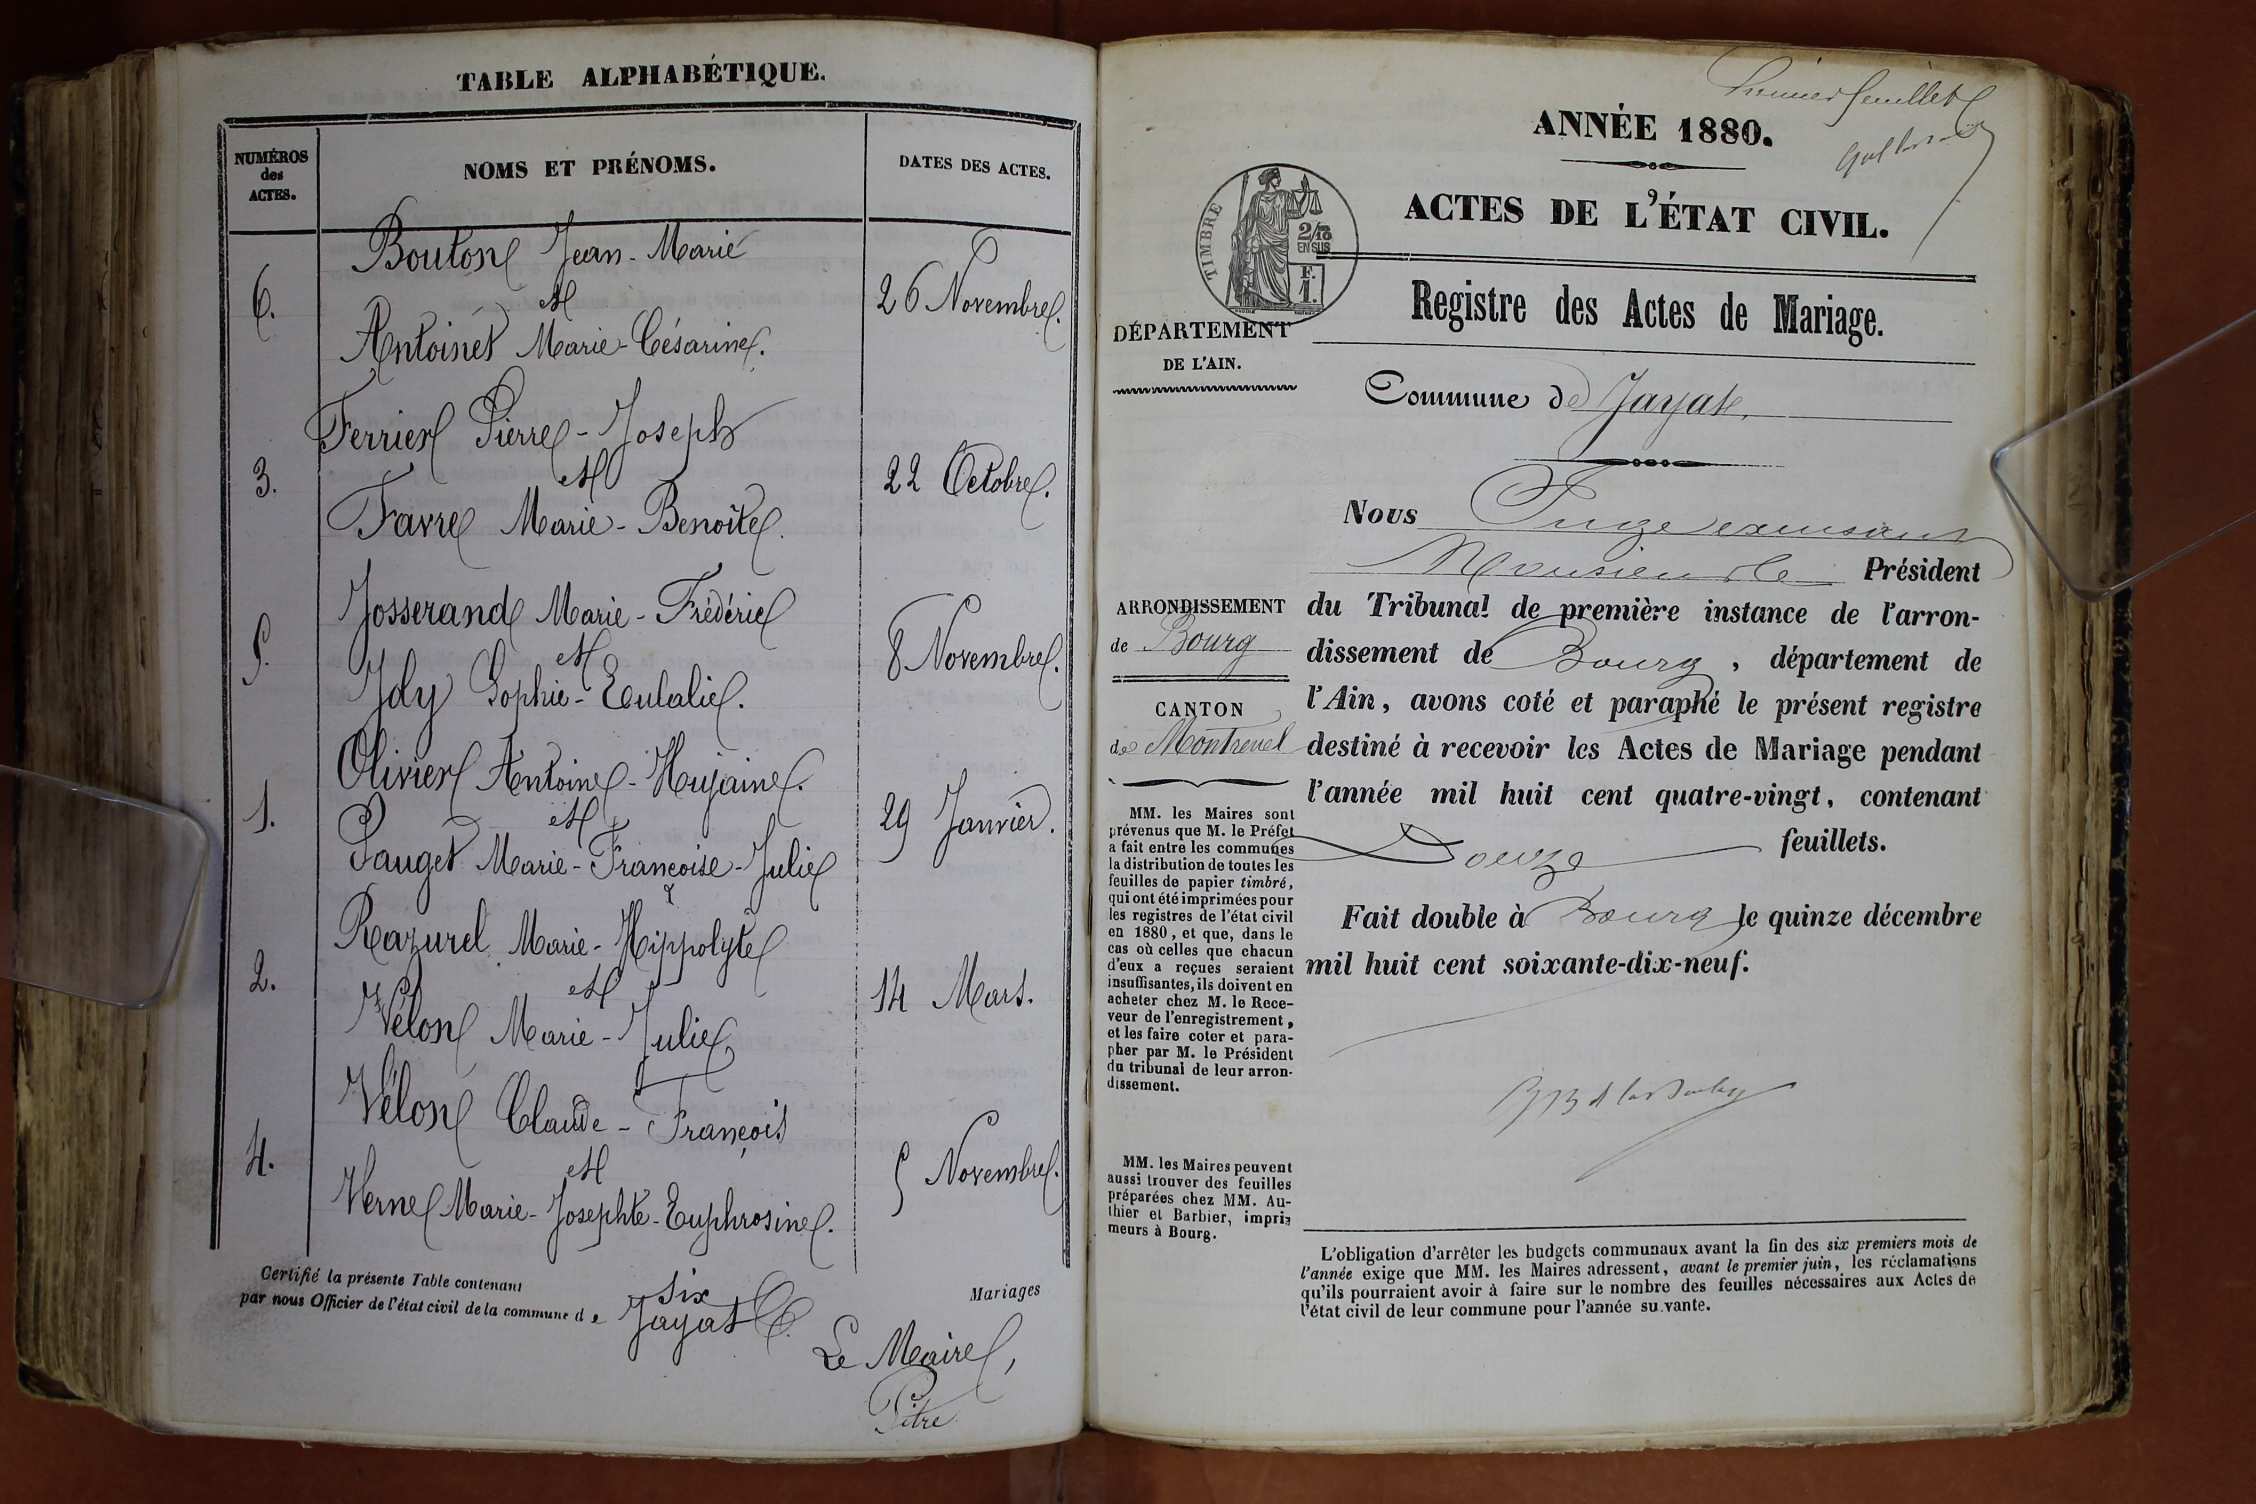 TABLE ALPHABÉTIQUE.
NUMÉROS
des
ACTES.
NOMS ET PRÉNOMS.
DATES DES ACTES.
Bouton Jean-Marie
6.
et
26 Novembre.
Antoinet Marie-Césarine.
Ferrier Pierre-Joseph
3.
et
22 Octobre.
Favre Marie-Benoîte.
Josserand Marie-Frédéric
5.
et
8 Novembre.
Joly Sophie-Eulalie.
Olivier Antoine-Hujaine.
1.
et
29 Janvier.
Pauget Marie-Françoise-Julie
Razurel Marie-Hippolyte
2.
et
14 Mars.
Vélon Marie-Julie
Vélon Claude-François
4.
et
5 Novembre.
Verne Marie-Josephte-Euphrosine.
Certifié la présente Table contenant six Mariages
par nous Officier de l'état civil de la commune de Jayat
Le Maire,
Pitre
Premier feuillet
ANNÉE 1880.
ACTES DE L'ÉTAT CIVIL.
TIMBRE
2/10
EN SUS
F.
1.
Registre des Actes de Mariage.
DÉPARTEMENT
DE L'AIN.
Commune de Jayat.
Nous Juge
Monsieur le Président
du Tribunal de première instance de l'arron-
dissement de Bourg, département de
l'Ain, avons coté et paraphé le présent registre
destiné à recevoir les Actes de Mariage pendant
l'année mil huit cent quatre-vingt, contenant
Douze feuillets.
Fait double à Bourg le quinze décembre
mil huit cent soixante-dix-neuf.
ARRONDISSEMENT
de Bourg
CANTON
de Montrevel
MM. les Maires sont
prévenus que M. le Préfet
a fait entre les communes
la distribution de toutes les
feuilles de papier timbré,
qui ont été imprimées pour
les registres de l'état civil
en 1880, et que, dans le
cas où celles que chacun
d'eux a reçues seraient
insuffisantes, ils doivent en
acheter chez M. le Rece-
veur de l'enregistrement,
et les faire coter et para-
pher par M. le Président
du tribunal de leur arron-
dissement.
MM. les Maires peuvent
aussi trouver des feuilles
préparées chez MM. Au-
thier et Barbier, impri-
meurs à Bourg.
L'obligation d'arrêter les budgets communaux avant la fin des six premiers mois de
l'année exige que MM. les Maires adressent, avant le premier juin, les réclamations
qu'ils pourraient avoir à faire sur le nombre des feuilles nécessaires aux Actes de
l'état civil de leur commune pour l'année suivante.